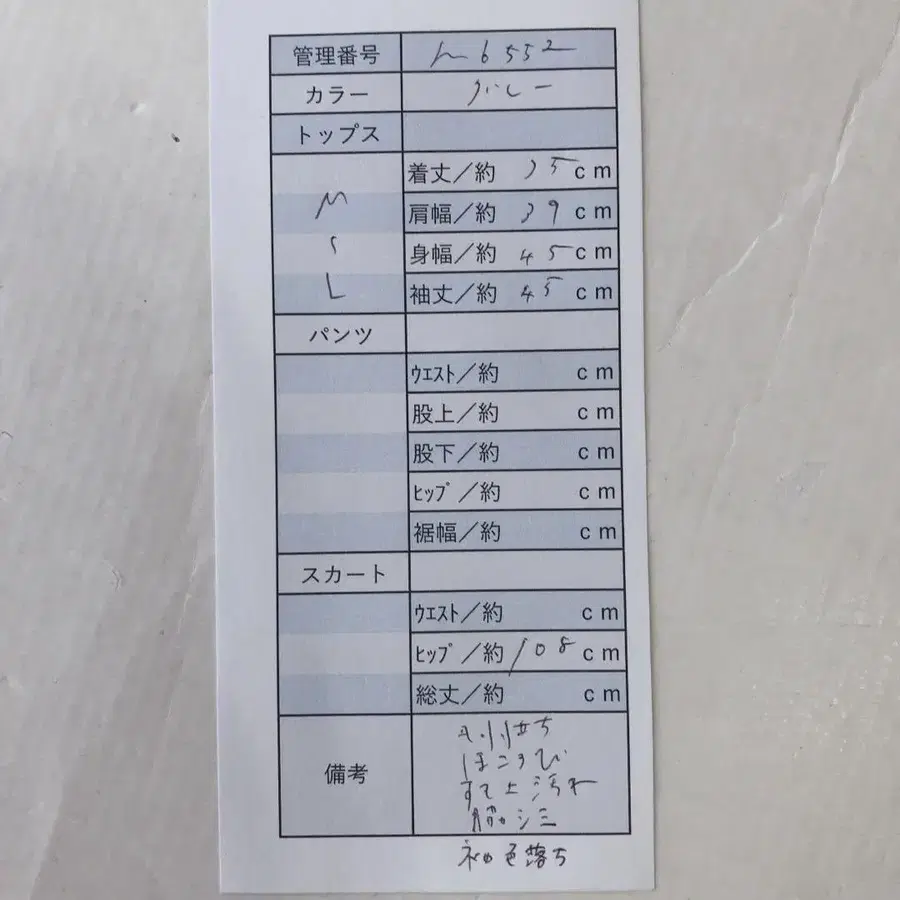 管理番号 m6552
カラー グレー
トップス
着丈／約 cm
M 肩幅／約 39 cm
S 身幅／約 45 cm
L 袖丈／約 45 cm
パンツ
ｳｴｽﾄ／約 cm
股上／約 cm
股下／約 cm
ﾋｯﾌﾟ／約 cm
裾幅／約 cm
スカート
ｳｴｽﾄ／約 cm
ﾋｯﾌﾟ／約 108 cm
総丈／約 cm
毛羽立ち
備考 ほころび
汚れ
脇シミ
袖色落ち